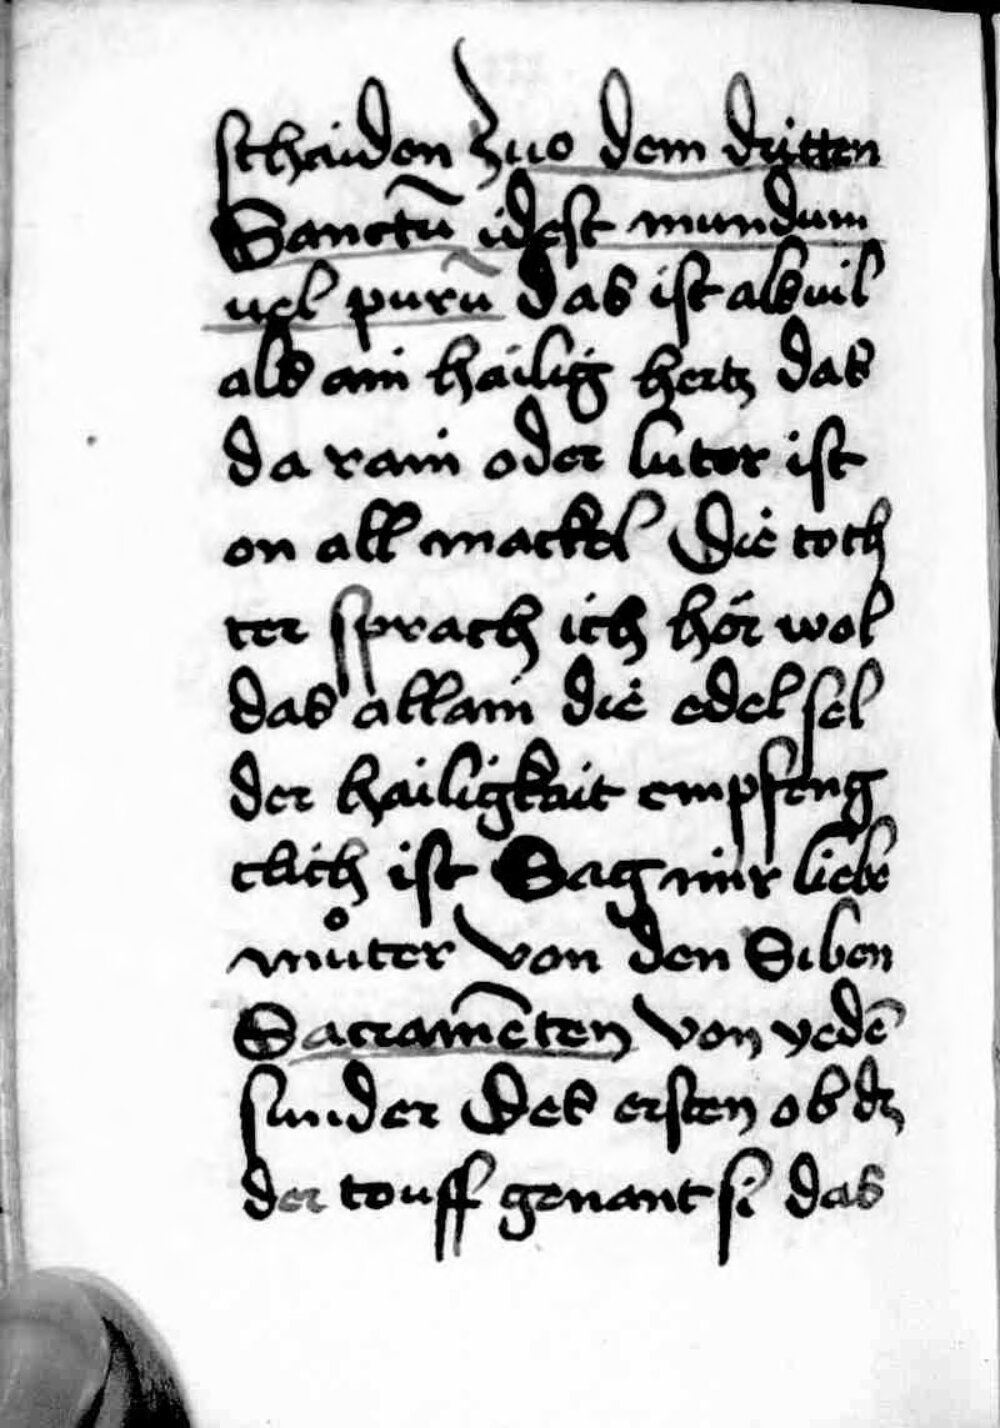 schaiden Zuo dem dritten
Sanctū idest mundum
uel purū das ist alsuil
als ain hailig hertz das
da rain oder luter ist
on all mackel Die toch
ter sprach ich hör wol
das allain die edel sel
der hailigkait empfeng
clich ist Sag mir liebe
můter von den Siben
Sacramēten von yedē
sunder Des ersten ob dz
der touff genant si das